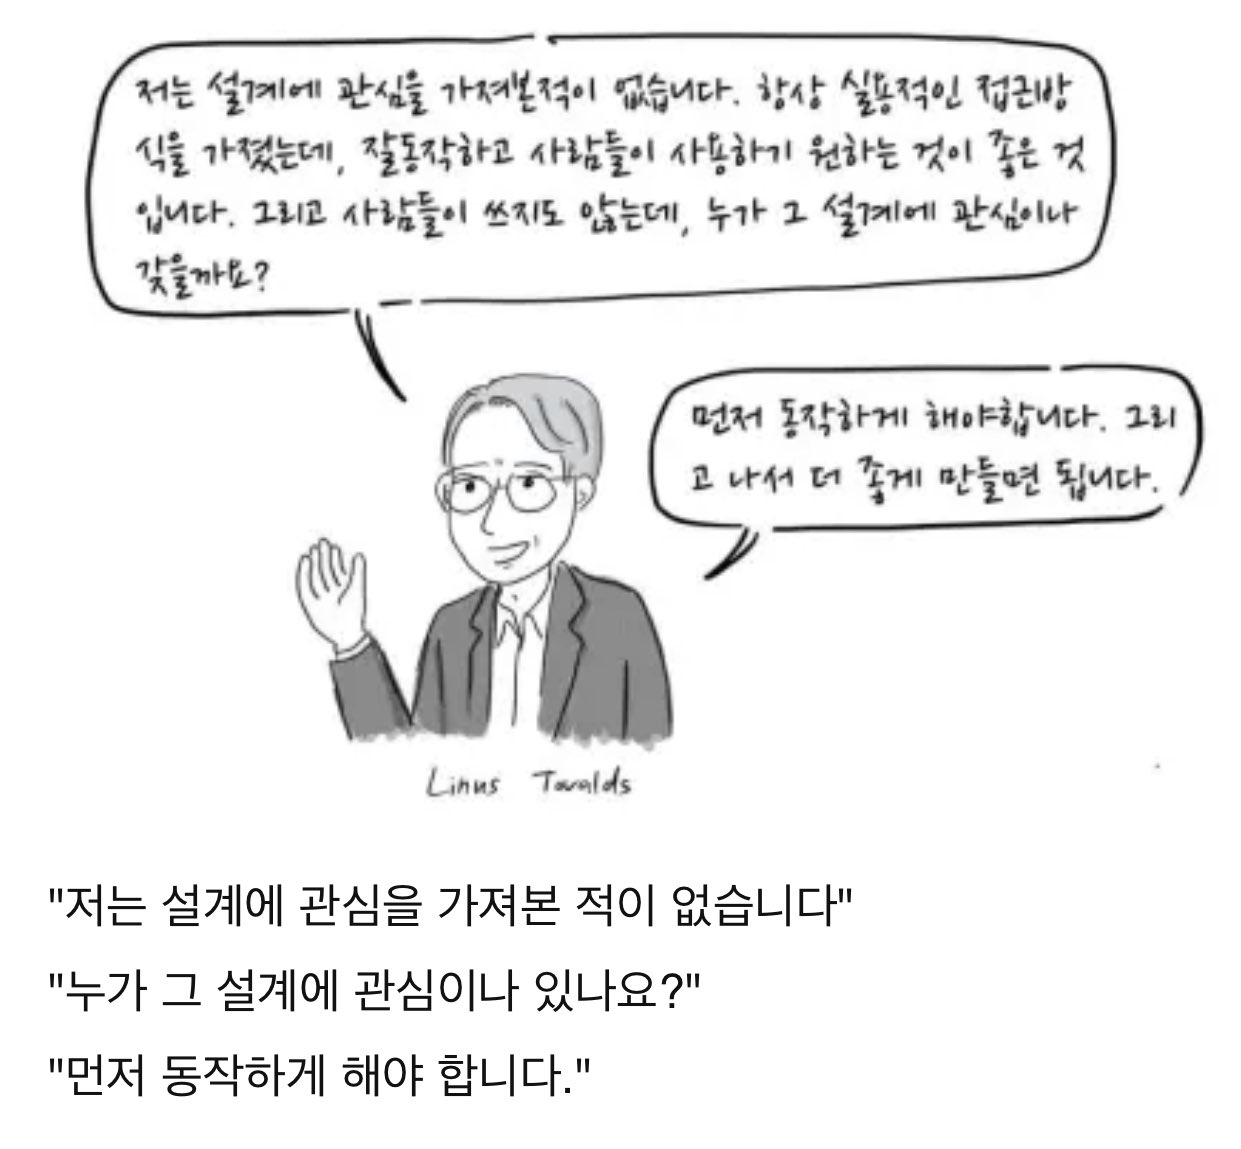 저는 설계에 관심을 가져본적이 없습니다. 항상 실용적인 접근방
식을 가졌는데, 잘동작하고 사람들이 사용하기 원하는 것이 좋은 것
입니다. 그리고 사람들이 쓰지도 않는데, 누가 그 설계에 관심이나
갖을까요?
먼저 동작하게 해야합니다. 그리
고 나서 더 좋게 만들면 됩니다.
Linus Tovalds
"저는 설계에 관심을 가져본 적이 없습니다"
"누가 그 설계에 관심이나 있나요?"
"먼저 동작하게 해야 합니다."